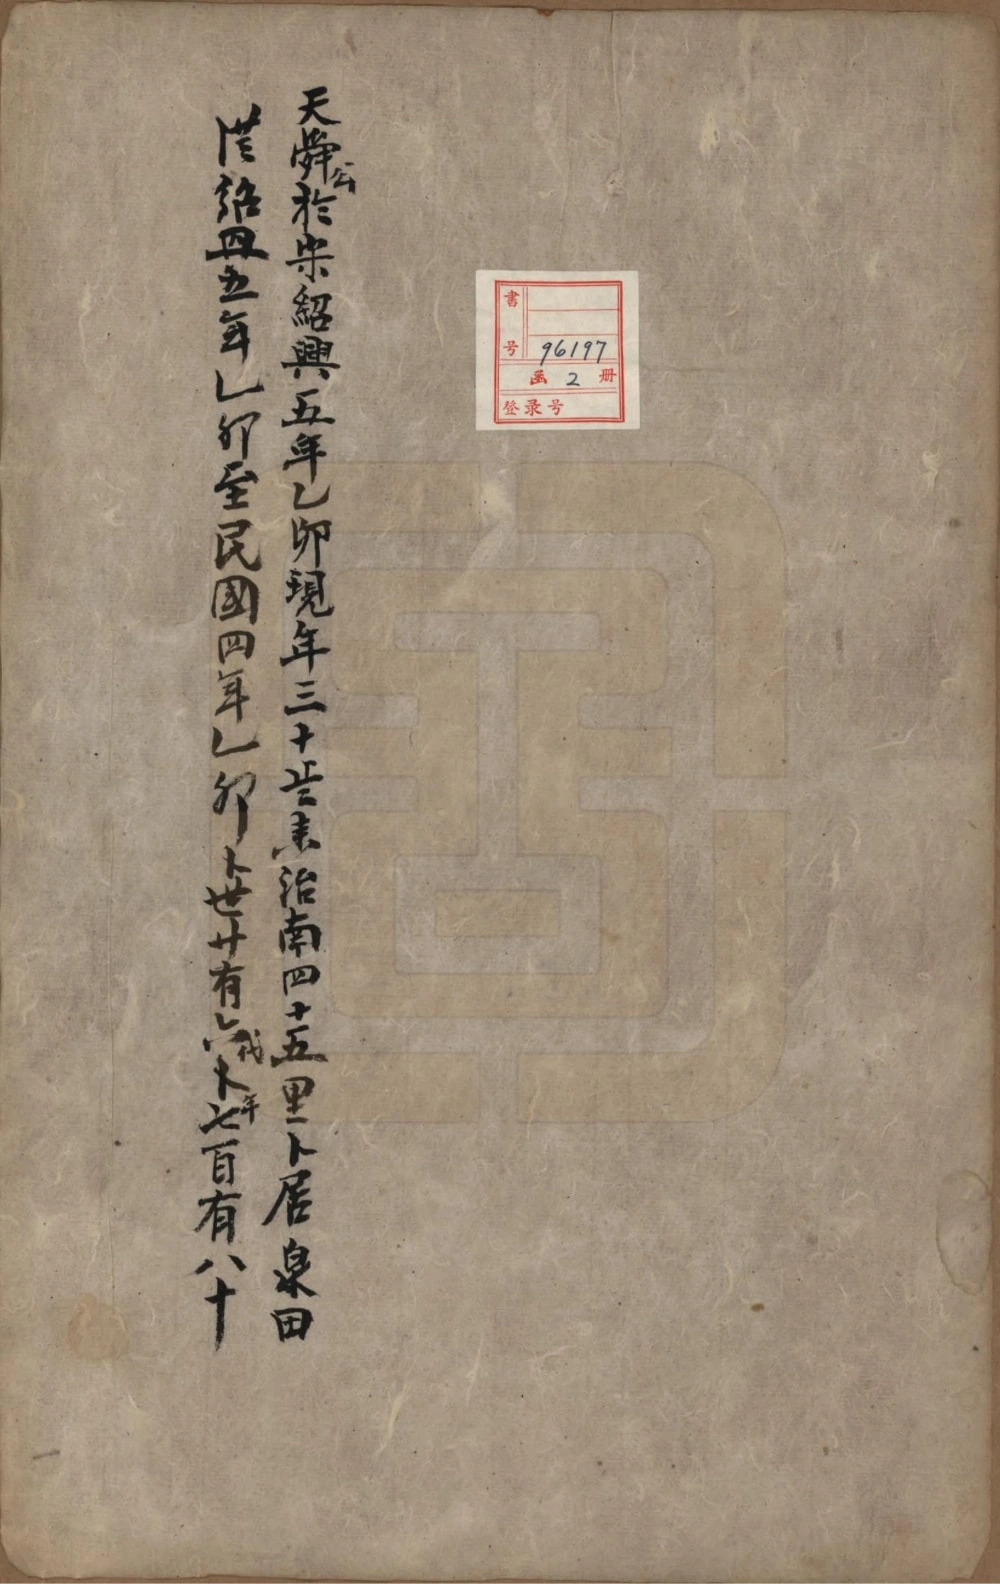 天舜公於宋紹興五年乙卯現年三十徙治南四十五里卜居泉田
從紹興五年乙卯至民國四年乙卯卜世廿有六代卜年七百有八十
書号 96197
函 2 册
登录号